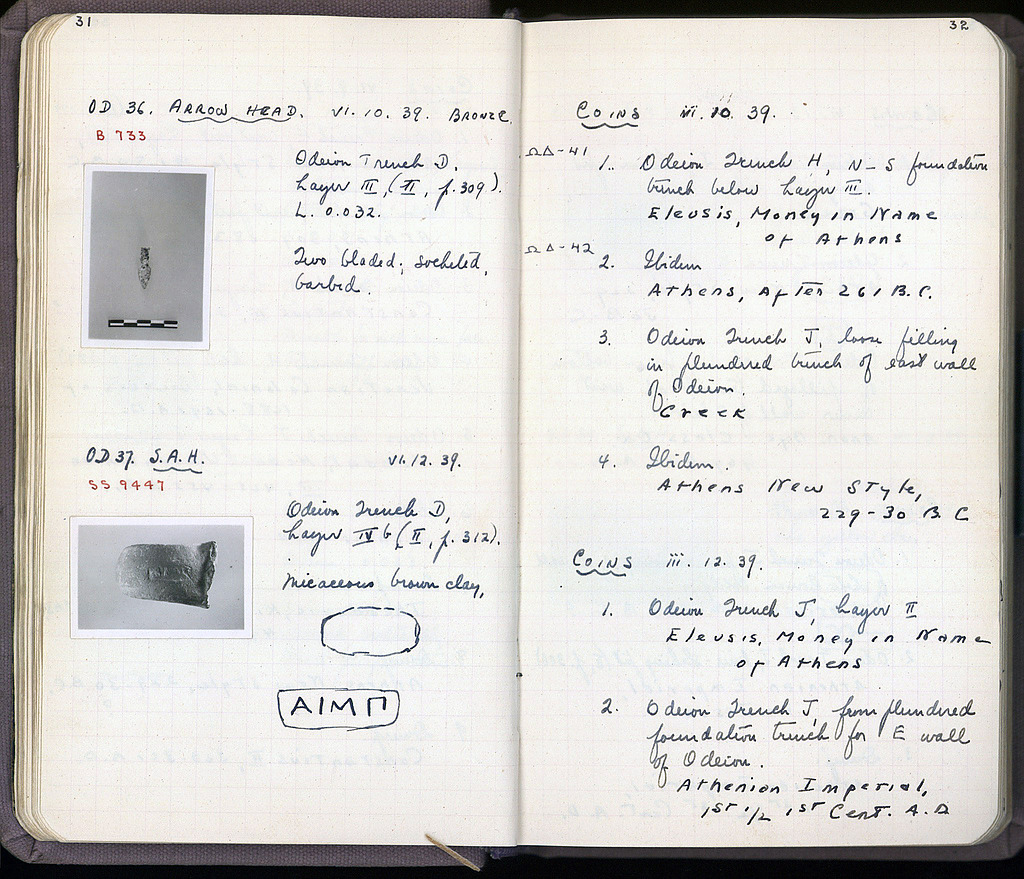 31
OD 36. ARROW HEAD. VI. 10. 39. BRONZE.
B 733
Odeion Trench D,
Layer III, (II, p. 309).
L. 0.032.
Two bladed, socketed,
barbed.
OD 37. S.A.H. VI. 12. 39.
SS 9447
Odeion Trench D,
Layer IV b (II, p. 312).
Micaceous brown clay,
ΑΙΜΠ
32
COINS iii. 10. 39.
ΩΔ-41
1. Odeion Trench H, N-S foundation
trench below Layer III.
Eleusis, Money in Name
of Athens
ΩΔ-42
2. Ibidem
Athens, After 261 B.C.
3. Odeion Trench J, loose filling
in plundred trench of east wall
of Odeion.
Greek
4. Ibidem.
Athens New Style,
229-30 B C
COINS iii. 12. 39.
1. Odeion Trench J, Layer II
Eleusis, Money in Name
of Athens
2. Odeion Trench J, from plundred
foundation trench for E wall
of Odeion.
Athenian Imperial,
1st 1/2 1st Cent. A.D.